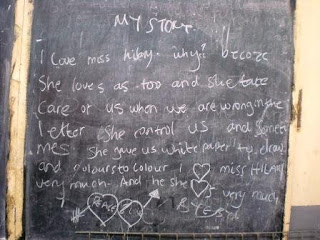 MY STORY
I Love miss hilary. why? becoze
She loves as too and she take
care of us when we are wronging the
letter she control us and somet
mes she gave us white paper to draw
and colours to colour I miss HILARY
very much. And he she very much
PEACE
BYE BYE